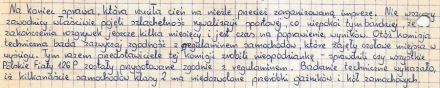 Na koniec sprawa, która rzuca cień na nieźle przecież zorganizowaną imprezę. Nie wszyscy
zawodnicy właściwie pojęli szlachetność rywalizacji sportowej, co niepokoi tym bardziej, że do
zakończenia rozgrywek jeszcze kilka miesięcy i jest czas na poprawienie wyników. Otóż komisja
techniczna bada zazwyczaj zgodność z regulaminem samochodów, które zajęły czołowe miejsca w
wyścigu. Tym razem przedstawiciele tej komisji zrobili niespodziankę - sprawdzili czy wszystkie
Polskie Fiaty 126P zostały przygotowane zgodnie z regulaminem. Badanie techniczne wykazało,
że kilkanaście samochodów klasy 2 ma niedozwolone przeróbki gaźników i kół zamachowych.